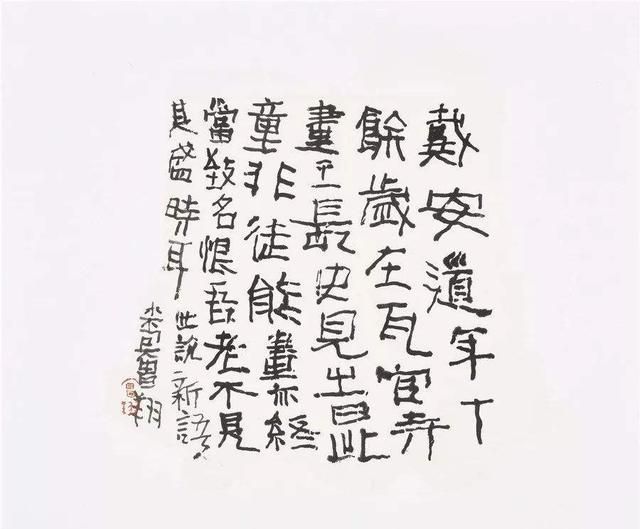 戴安道年十
餘歲在瓦官寺
畫王長史見之曰此
童非徒能畫亦終
當致名恨吾老不見
其盛時耳
世說新語
魯翔